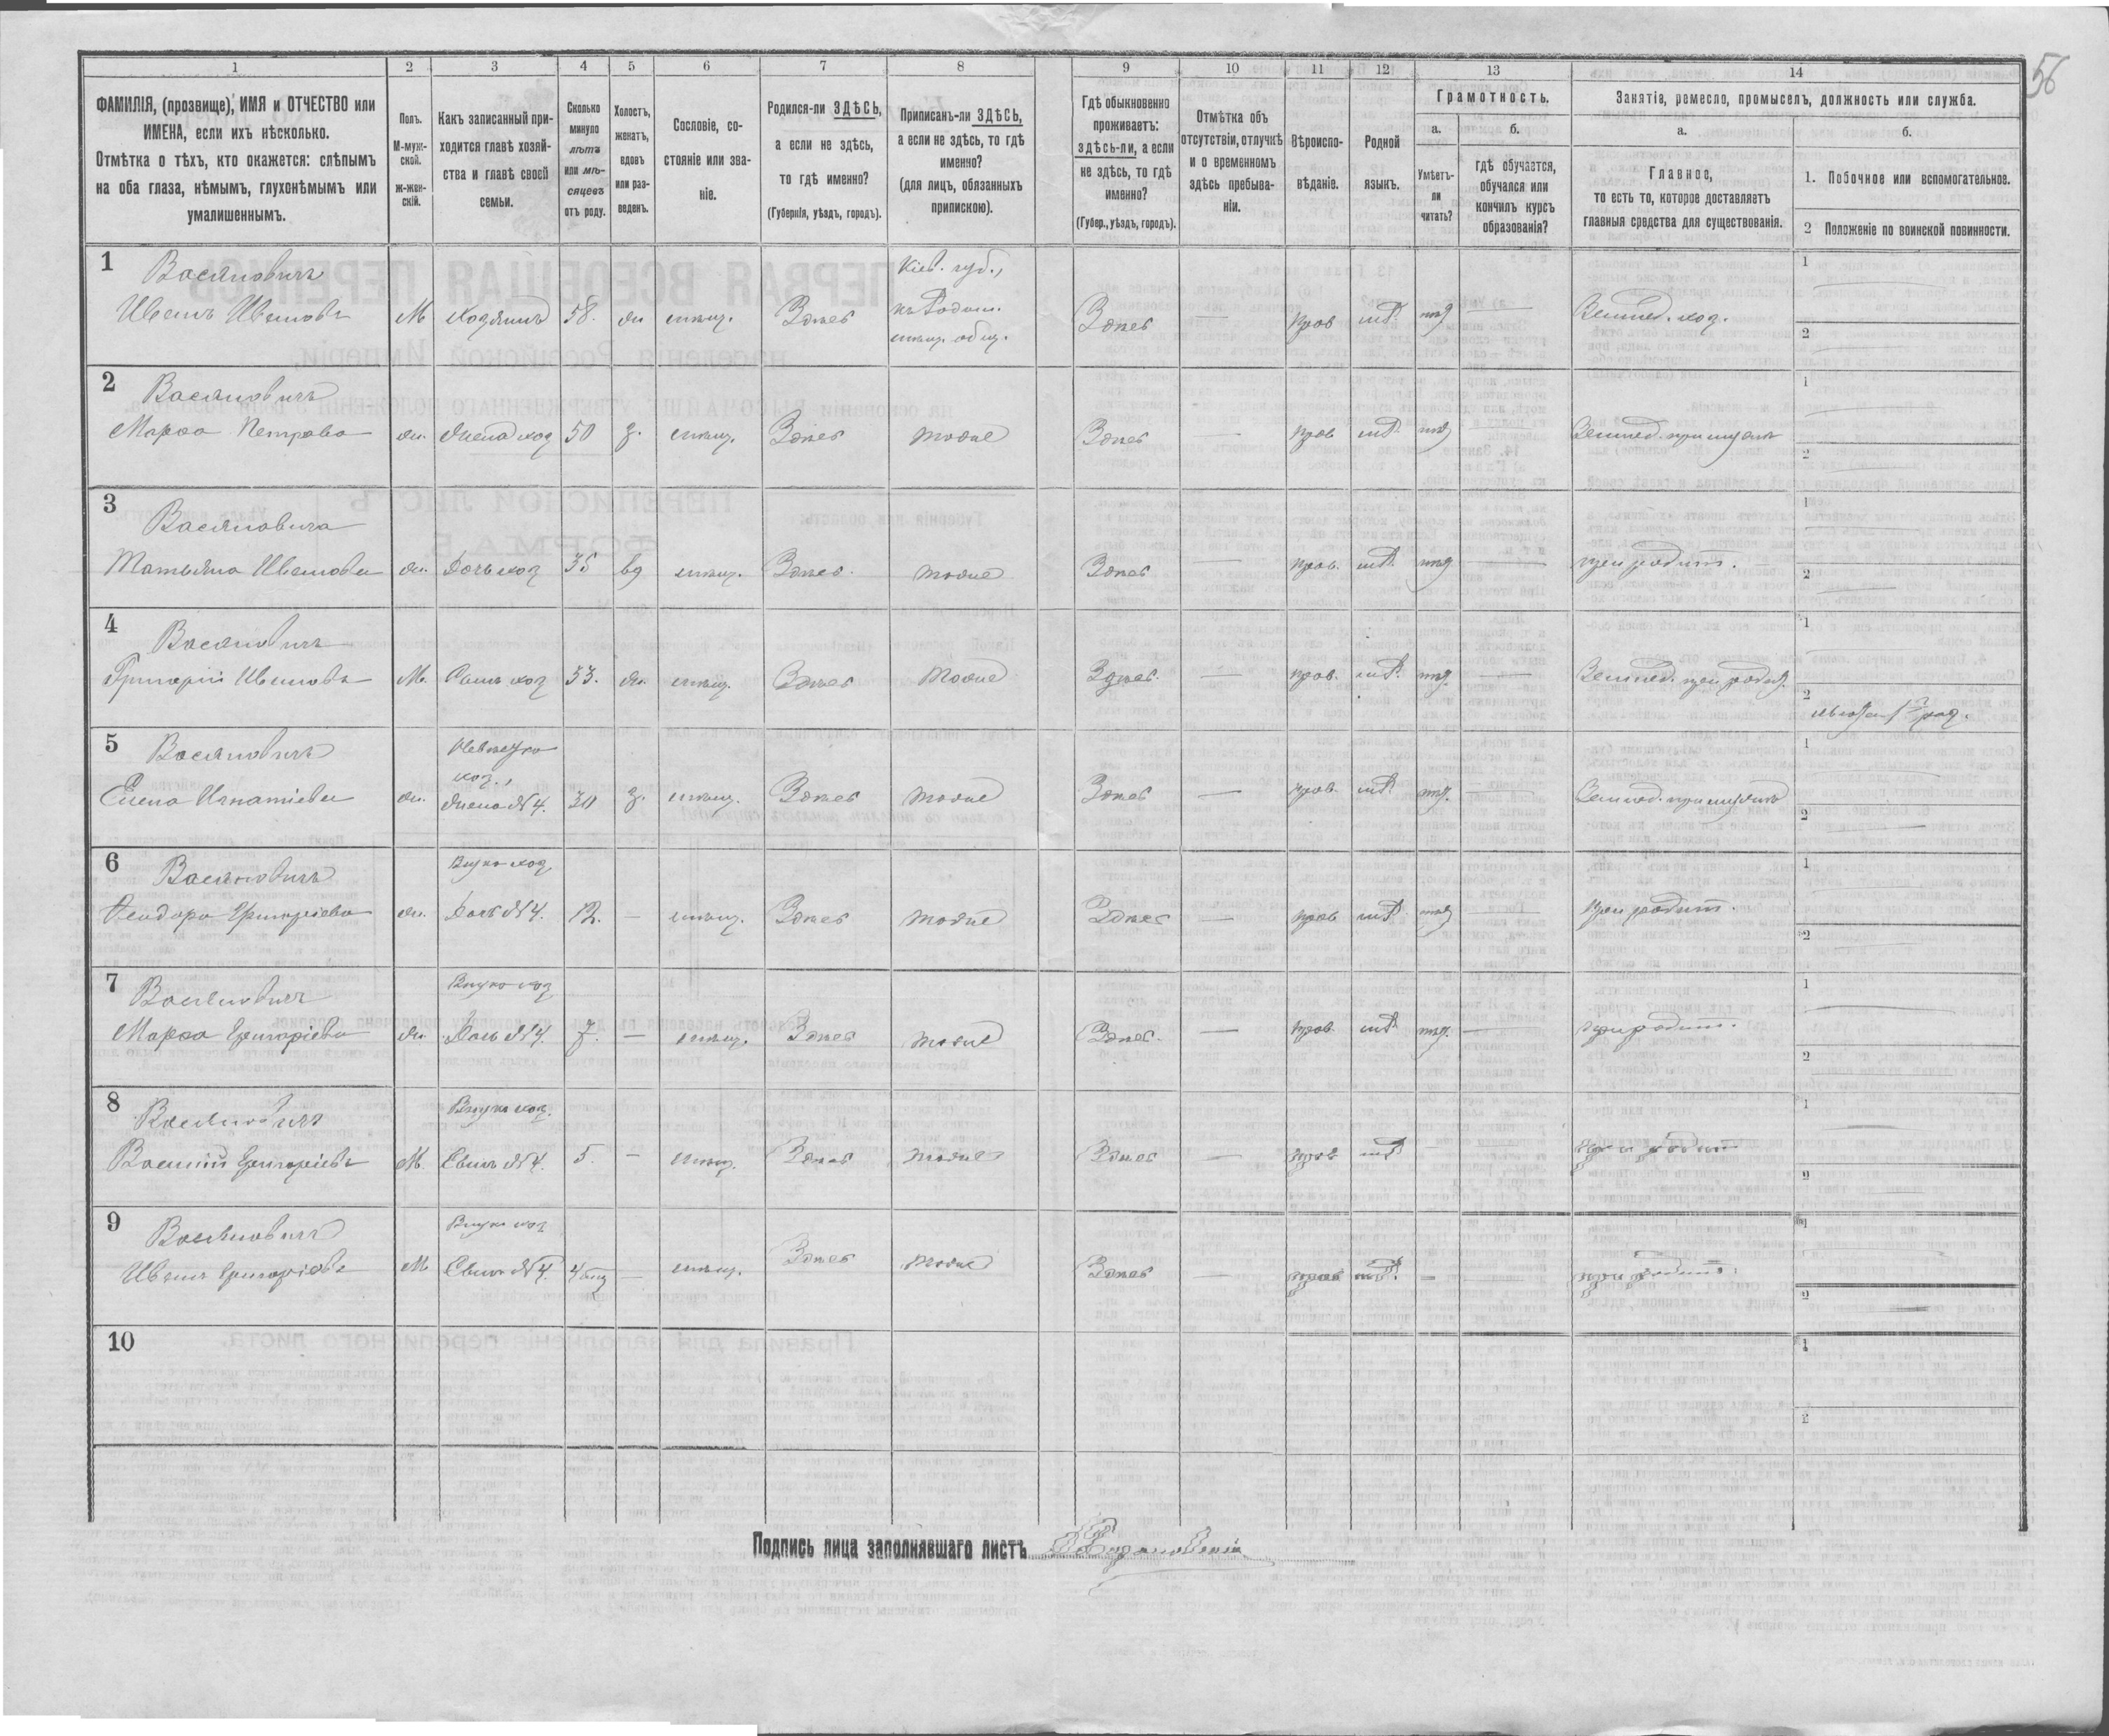 56
1 2 3 4 5 6 7 8 9 10 11 12 13 14
ФАМИЛІЯ, (прозвище), ИМЯ и ОТЧЕСТВО или
ИМЕНА, если ихъ нѣсколько.
Отмѣтка о тѣхъ, кто окажется: слѣпымъ
на оба глаза, нѣмымъ, глухонѣмымъ или
умалишеннымъ.
Полъ.
М-муж-
ской.
ж-жен-
скій.
Какъ записанный при-
ходится главѣ хозяй-
ства и главѣ своей
семьи.
Сколько
минуло
лѣтъ
или мѣ-
сяцевъ
отъ роду.
Холостъ,
женатъ,
вдовъ
или раз-
веденъ.
Сословіе, со-
стояніе или зва-
ніе.
Родился-ли ЗДѢСЬ,
а если не здѣсь,
то гдѣ именно?
(Губернія, уѣздъ, городъ).
Приписанъ-ли ЗДѢСЬ,
а если не здѣсь, то гдѣ
именно?
(для лицъ, обязанныхъ
припискою).
Гдѣ обыкновенно
проживаетъ:
здѣсь-ли, а если
не здѣсь, то гдѣ
именно?
(Губер., уѣздъ, городъ).
Отмѣтка объ
отсутствіи, отлучкѣ
и о временномъ
здѣсь пребыва-
ніи.
Вѣроиспо-
вѣданіе.
Родной
языкъ.
Грамотность.
а.
Умѣетъ-
ли
читать?
б.
гдѣ обучается,
обучался или
кончилъ курсъ
образованія?
Занятіе, ремесло, промыселъ, должность или служба.
а.
Главное,
то есть то, которое доставляетъ
главныя средства для существованія.
б.
1. Побочное или вспомогательное.
2 Положеніе по воинской повинности.
1 Васяновичъ Кіев. губ., 1
Иванъ Ивановъ М Хозяинъ 58. ж мѣщ. Здѣсь Здѣсь — прав Землед. хоз.
мѣщ. общ. 2
2 Васяновичъ 1
Марѳа Петрова ж. жена хоз 50 з. мѣщ. Здѣсь тоже Здѣсь — прав Землед. при мужѣ
2
3 Васяновичъ 1
Татьяна Иванова ж. Дочь хоз 35 вд мѣщ. Здѣсь тоже Здѣсь — прав. при родит. 2
4 Васяновичъ 1
Григорій Ивановъ М. Сынъ хоз 33. ж. мѣщ. Здѣсь тоже Здѣсь — прав. Землед. при родит.
2
5 Васяновичъ Невѣстка 1
хоз.,
Елена Игнатіева ж. жена №4. 30 з. мѣщ. Здѣсь тоже Здѣсь — прав. Землед. при мужѣ
2
6 Васяновичъ Внука хоз 1
Ѳеодора Григоріева ж. Дочь №4. 12. — мѣщ. Здѣсь тоже Здѣсь — прав при родит.
2
7 Васяновичъ Внука хоз 1
Марѳа Григоріева ж. Дочь №4. 7. — мѣщ. Здѣсь тоже Здѣсь. — прав при родит.
2
8 Васяновичъ Внукъ хоз. 1
Василій Григоріевъ М. Сынъ №4. 5. — мѣщ. Здѣсь тоже Здѣсь — прав — при родит
2
9 Васяновичъ Внукъ хоз 1
Иванъ Григоріевъ М Сынъ №4. — мѣщ. Здѣсь тоже Здѣсь — прав — при родит.
2
10 1
2
Подпись лица заполнявшаго листъ